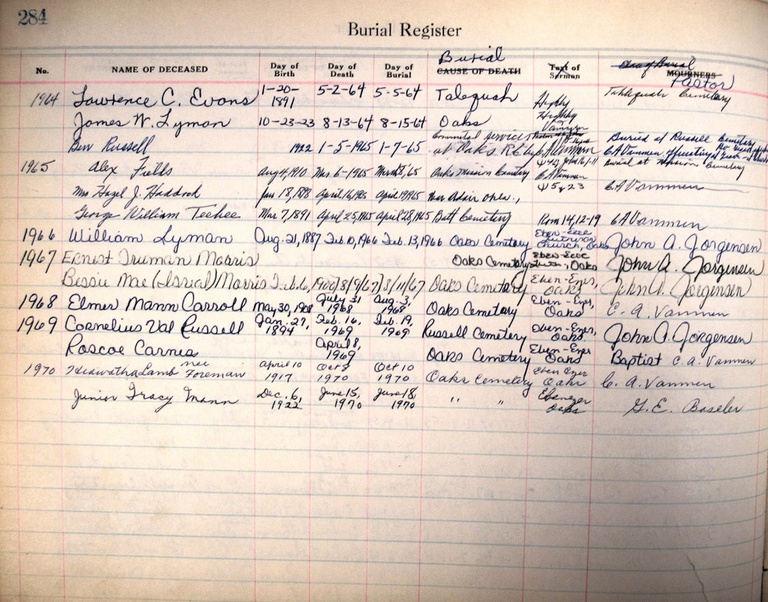 284
Burial Register
No. NAME OF DECEASED Day of Birth Day of Death Day of Burial Burial CAUSE OF DEATH Text of Sermon MOURNERS Pastor
1964 Lawrence C. Evans 1-20-1891 5-2-64 5-5-64 Talequah Higby Tahlequah Cemetery
James W. Lyman 10-23-23 8-13-64 8-15-64 Oaks Higby
Ben Russell 1922 1-5-1965 1-7-65 Committal services at Oaks Buried at Russell Cemetery
1965 Alex Fields Aug 4, 1910 Mar 6-1965 Mar 8, '65 Oaks Mission Cemetery CA Vammen burial at Mission Cemetery
Mrs Hazel J. Haddock Jan 18, April 16, April near Adair Okla., Ψ 5, 23 CA Vammen
George William Teehee Mar 7, 1891 April 25, 1965 April 28, 1965 Butt Cemetery Rom 14, 12-19 CA Vammen
1966 William Lyman Aug. 21, 1887 Feb. 10, 1966 Feb. 13, 1966 Oaks Cemetery Eben-Ezer Lutheran Church, Oaks John A. Jorgensen
1967 Ernest Truman Morris Oaks Cemetery Eben-Ezer, Oaks John A. Jorgensen
Bessie Mae (Israel) Morris Feb. 6, 8/9/67 8/11/67 Oaks Cemetery Eben-Ezer, Oaks John A. Jorgensen
1968 Elmer Mann Carroll May 30, July 31 1968 Aug. 3, 1968 Oaks Cemetery Eben-Ezer, Oaks C. A. Vammen
1969 Cornelius Val Russell Jan. 27, 1894 Feb. 16, 1969 Feb. 19, 1969 Russell Cemetery Eben-Ezer, Oaks John A. Jorgensen
Roscoe Carnes April 8, 1969 Oaks Cemetery Eben-Ezer Oaks Baptist C. A. Vammen
1970 Hiawatha Lamb nee Foreman April 10 1917 Oct 8 1970 Oct 10 1970 Oaks Cemetery Eben Ezer Oaks C. A. Vammen
Junior Tracy Mann Dec. 6, 1922 June 15, 1970 June 18, 1970 " " Ebenezer Oaks G. E. Baseler